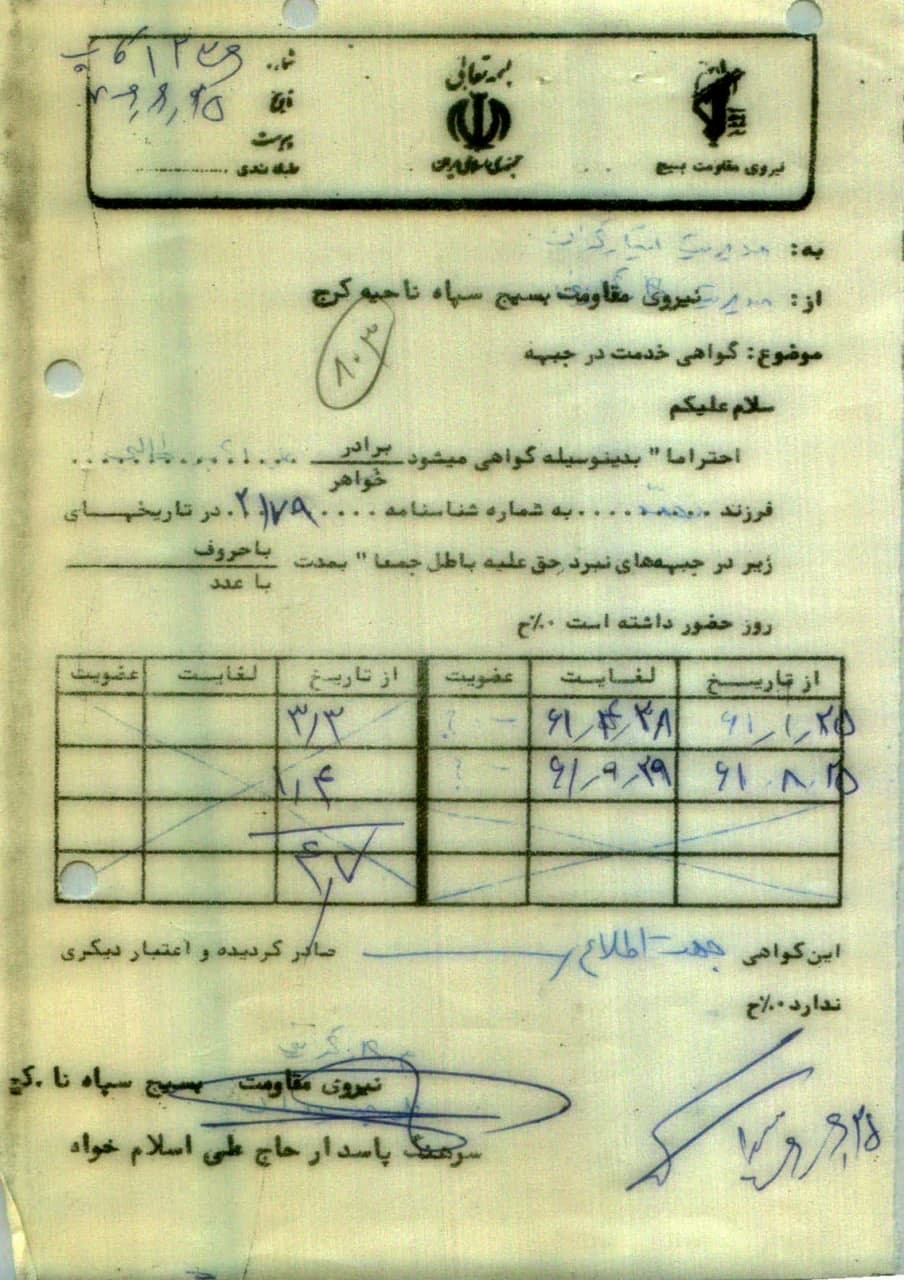 بسمه تعالی
جمهوری اسلامی ایران
نیروی مقاومت بسیج
شماره
تاریخ
پیوست
طبقه بندی
به: مدیریت
از: نیروی مقاومت بسیج سپاه ناحیه کرج
۸۰۳
موضوع: گواهی خدمت در جبهه
سلام علیکم
احتراما" بدینوسیله گواهی میشود برادر
خواهر
فرزند به شماره شناسنامه ۲۱۷۹ در تاریخهای
زیر در جبهه‌های نبرد حق علیه باطل جمعا" بمدت باحروف
با عدد
روز حضور داشته است ۰٪ح
از تاریخ لغایت عضویت از تاریخ لغایت عضویت
۶۱٫۱٫۲۵ ۶۱٫۴٫۲۸ ۳٫۳
۶۱٫۸٫۲۵ ۶۱٫۹٫۲۹ ۱٫۴
۴٫۷
این گواهی جهت اطلاع صادر گردیده و اعتبار دیگری
ندارد ۰٪ح
نیروی مقاومت بسیج سپاه نا .کرج
سرهنگ پاسدار حاج علی اسلام خواه